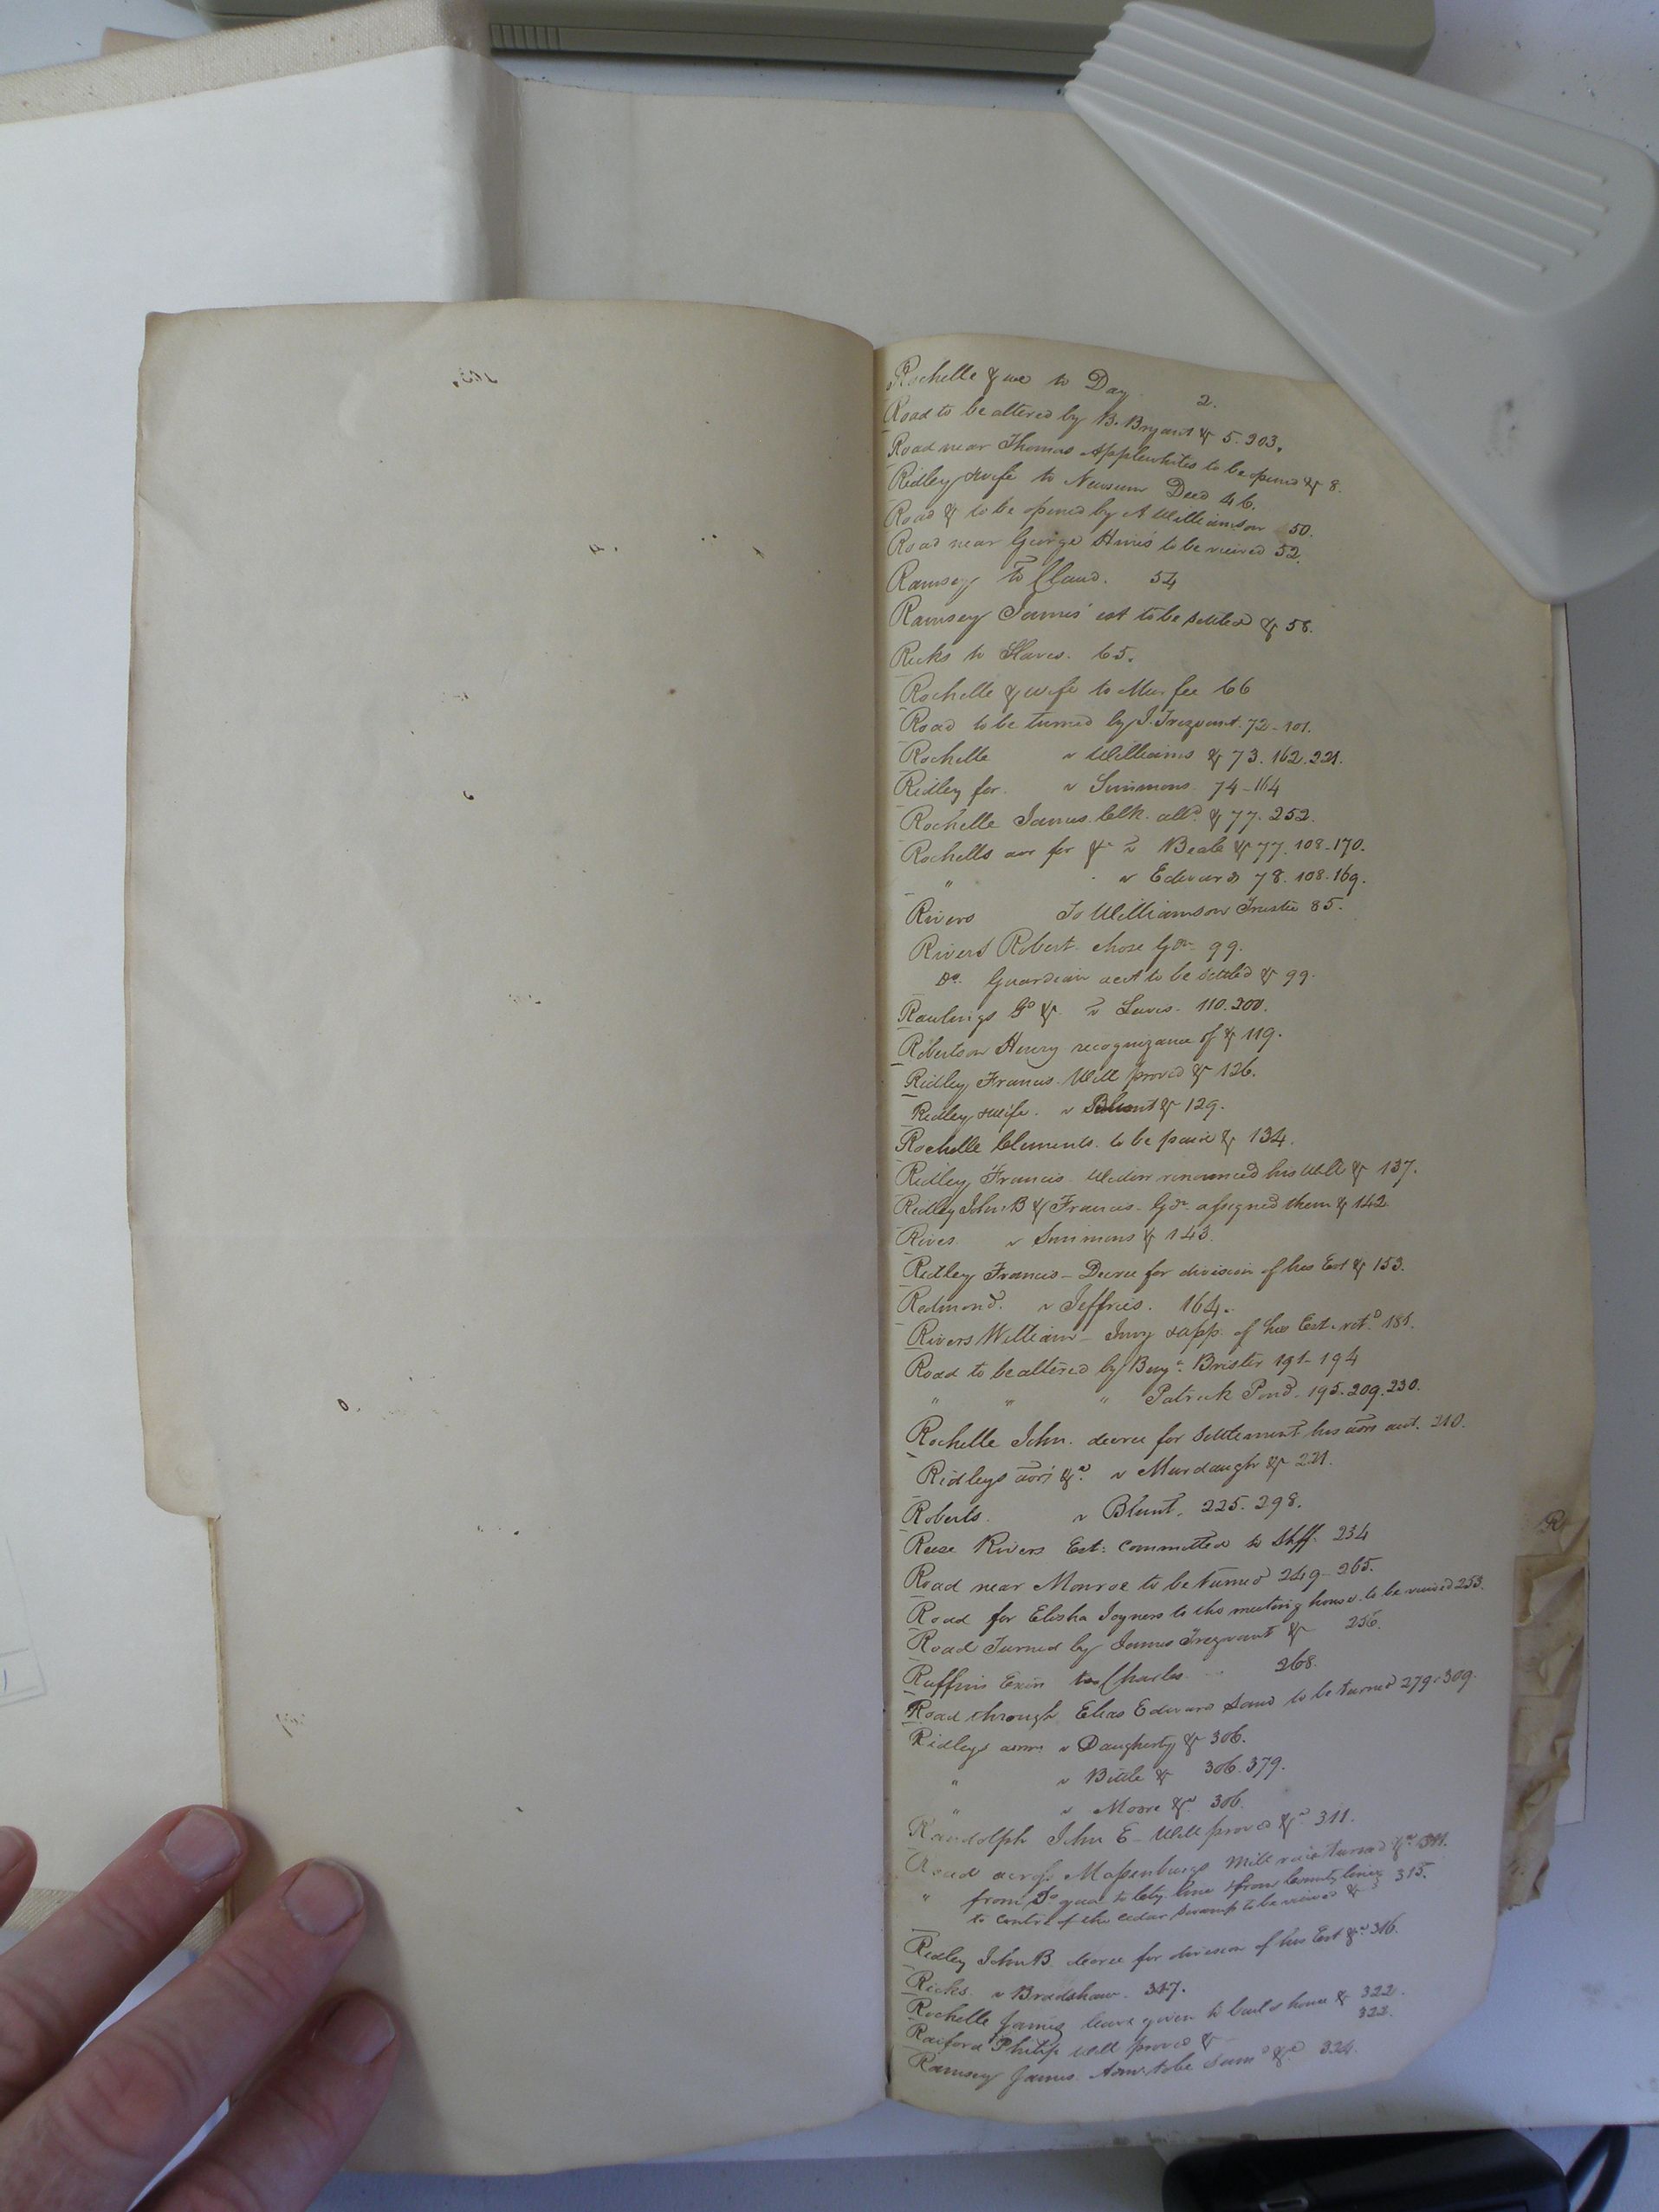 Rochelle & ux to Day 2.
Road to be altered by B. Bryant & 5. 303.
Road near Thomas Applewhites to be opened & 8.
Ridley & wife to Newsum Deed 46.
Road & to be opened by A Williamson 50.
Road near George Hines to be viewed 52.
Ramsey to Claud. 54
Ramsey James' est to be settled & 58.
Ricks to Slaves. 65.
Rochelle & wife to Murfee 66
Road to be turned by J. Trezvant. 72 - 101.
Rochelle v Williams & 73. 162. 221.
Ridley for v Simmons 74 - 164
Rochelle James. Clk. alld. & 77. 252.
Rochells aor for &c v Beale & 77. 108 - 170.
" v Edwards 78. 108. 169.
Rivers To Williamson Trustee 85.
Rivers Robert. chose Gdn 99.
Do. Guardian acct to be settled & 99.
Rawlings Go &. v Lewis. 110. 200.
Robertson Henry recognizance of & 119.
Ridley Francis. Will proved & 126.
Ridley & wife. v Blunt & 129.
Rochelle Clements. to be paid & 134.
Ridley Francis. Widow renounced his Will & 137.
Ridley John B & Francis - Gdn. assigned them & 142.
Rives. v Simmons & 143.
Ridley Francis - Decree for division of his Est & 153.
Redmond. v Jeffries. 164.
Rivers William - Invy & app. of his Est. retd. 181.
Road to be altered by Benja. Brister 191 - 194
" " " Patrick Pond - 195. 209. 230.
Rochelle John. decree for settlement his aors acct. 210.
Ridleys aors &c. v Murdaugh & 221.
Roberts. v Blunt. 225. 298.
Reese Rivers Est: Committed to Shff. 234
Road near Monroe to be turned 249 - 265.
Road for Elisha Joyners to the meeting house to be viewed 253.
Road Turned by James Trezvant & 256.
Ruffins Exin to Charles 268.
Road through Elias Edwards Land to be turned 279 - 309.
Ridleys aomr v Daugherty & 306.
" v Bittle & 306. 379.
" v Moore &c 306.
Randolph John E - Will proved &c 311.
Road across Massenburgs Mill race turned &c 311.
" from Do to Cty line & from County line 315.
to Centre of the Cedar Swamp to be viewed &
Ridley John B. decree for division of his Est &c 316.
Ricks. v Bradshaw. 317.
Rochelle James leave given to build house & 322.
Raiford Philip Will proved & 322.
Ramsey James. Aomr to be Sumd &c 324.
R